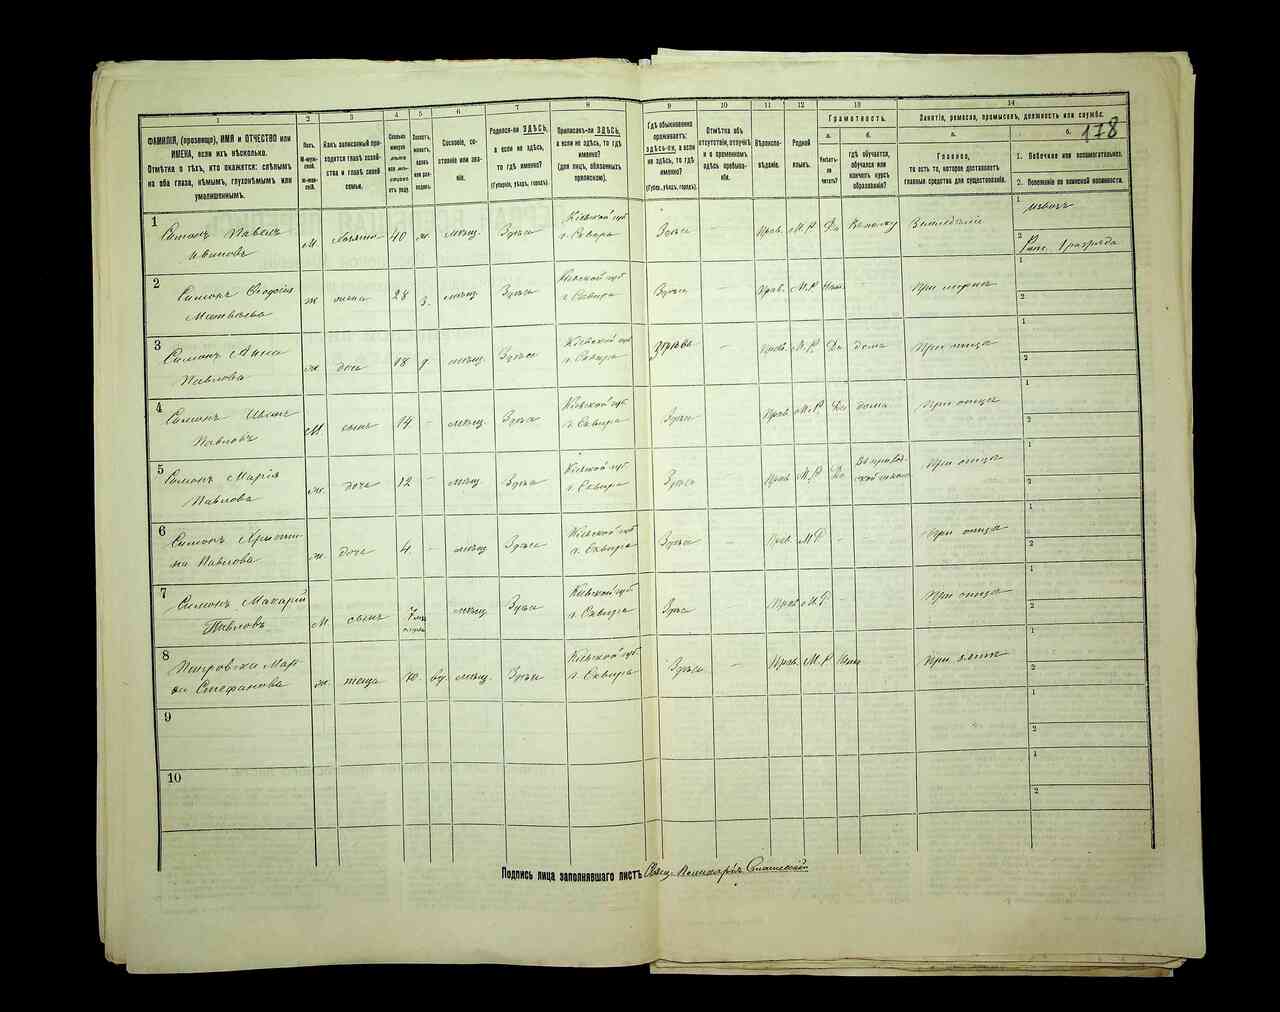 1 2 3 4 5 6 7 8 9 10 11 12 13 14
ФАМИЛІЯ, (прозвище), ИМЯ и ОТЧЕСТВО или
ИМЕНА, если ихъ нѣсколько.
Отмѣтка о тѣхъ, кто окажется: слѣпымъ
на оба глаза, нѣмымъ, глухонѣмымъ или
умалишеннымъ.
Полъ.
М-мужской.
Ж-женскій.
Какъ записанный приходится
главѣ хозяйства и главѣ своей
семьи.
Сколько
минуло
лѣтъ
или мѣсяцевъ
отъ роду.
Холостъ,
женатъ,
вдовъ
или разведенъ.
Сословіе, состояніе
или званіе.
Родился-ли ЗДѢСЬ,
а если не здѣсь,
то гдѣ
именно?
(Губернія, уѣздъ, городъ).
Приписанъ-ли ЗДѢСЬ,
а если не здѣсь, то гдѣ
именно?
(для лицъ, обязанныхъ
припискою).
Гдѣ обыкновенно
проживаетъ:
здѣсь-ли, а если
не здѣсь, то гдѣ
именно?
(Губерн., уѣздъ, городъ).
Отмѣтка объ
отсутствіи, отлучкѣ
и о временномъ
здѣсь пребываніи.
Вѣроисповѣданіе.
Родной
языкъ.
Грамотность.
а. б.
Умѣетъ-ли
читать?
гдѣ обучается,
обучался или
кончилъ курсъ
образованія?
Занятія, ремесло, промыселъ, должность или служба.
178
а. б.
Главное,
то есть то, которое доставляетъ
главныя средства для существованія.
1. Побочное или вспомогательное.
2. Положеніе по воинской повинности.
1 Симонъ Павелъ
Ивановъ
м. хозяинъ 40 ж. мѣщ. Здѣсь Кіевской губ
г. Сквира
Здѣсь — Прав. М.Р. Да
1 извозъ
2 Рат. 1 разряда
2 Симонъ Ѳеодосія
Матвѣева
ж жена 28 з. мѣщ Здѣсь Кіевской губ
г. Сквира
Здѣсь — Прав. М.Р. При мужѣ
1
2
3 Симонъ Анна
Павлова
ж. дочь 18 д. мѣщ. Здѣсь Кіевской губ
г. Сквира
Здѣсь — Прав. М.Р. Да дома При отцѣ
1
2
4 Симонъ Иванъ
Павловъ
М. сынъ 14 — мѣщ. Здѣсь Кіевской губ
г. Сквира
Здѣсь — Прав. М.Р. Да дома При отцѣ
1
2
5 Симонъ Марія
Павлова
ж. дочь 12 — мѣщ. Здѣсь Кіевской губ
г. Сквира
Здѣсь — Прав. М.Р. Да При отцѣ
1
2
6 Симонъ
Павлова
ж. дочь 4 — мѣщ Здѣсь Кіевской губ
г. Сквира
Здѣсь — Прав. М.Р. — — При отцѣ
1
2
7 Симонъ Макарій
Павловъ
М. сынъ 7 мѣщ Здѣсь Кіевской губ
г. Сквира
Здѣсь Прав. М.Р. — При отцѣ
1
2
8
Стефанова
ж. теща вд. мѣщ. Здѣсь Кіевской губ
г. Сквира
Здѣсь — Прав. М.Р. При зятѣ
1
2
9
1
2
10
1
2
Подпись лица заполнявшаго листъ Свящ.